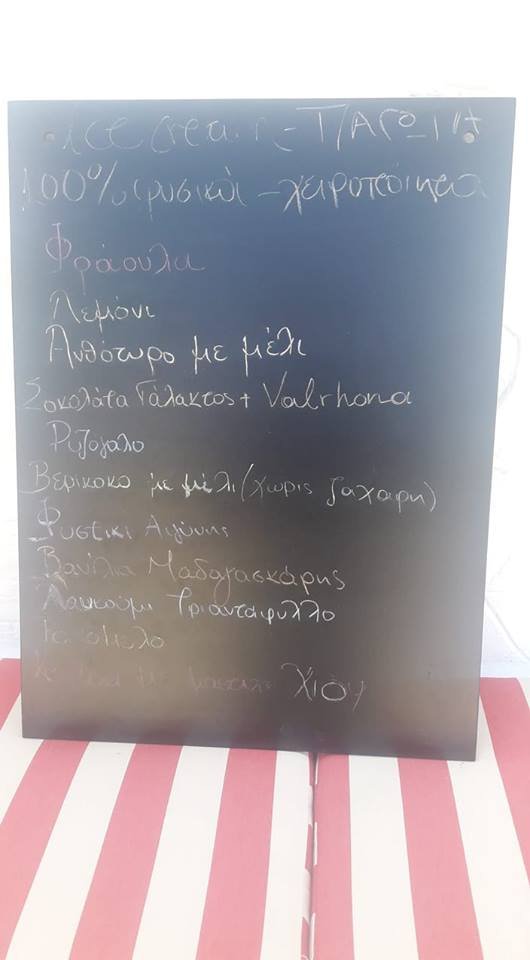 ice cream - ΠΑΓΩΤΑ
100% φυσικά - χειροποίητα
Φράουλα
Λεμόνι
Ανθότυρο με μέλι
Σοκολάτα Γάλακτος + Valrhona
Ρυζόγαλο
Βερίκοκο με μέλι (χωρίς ζάχαρη)
Φυστίκι Αιγίνης
Βανίλια Μαδαγασκάρης
Λουκούμι Τριαντάφυλλο
με μαστίχα Χίου